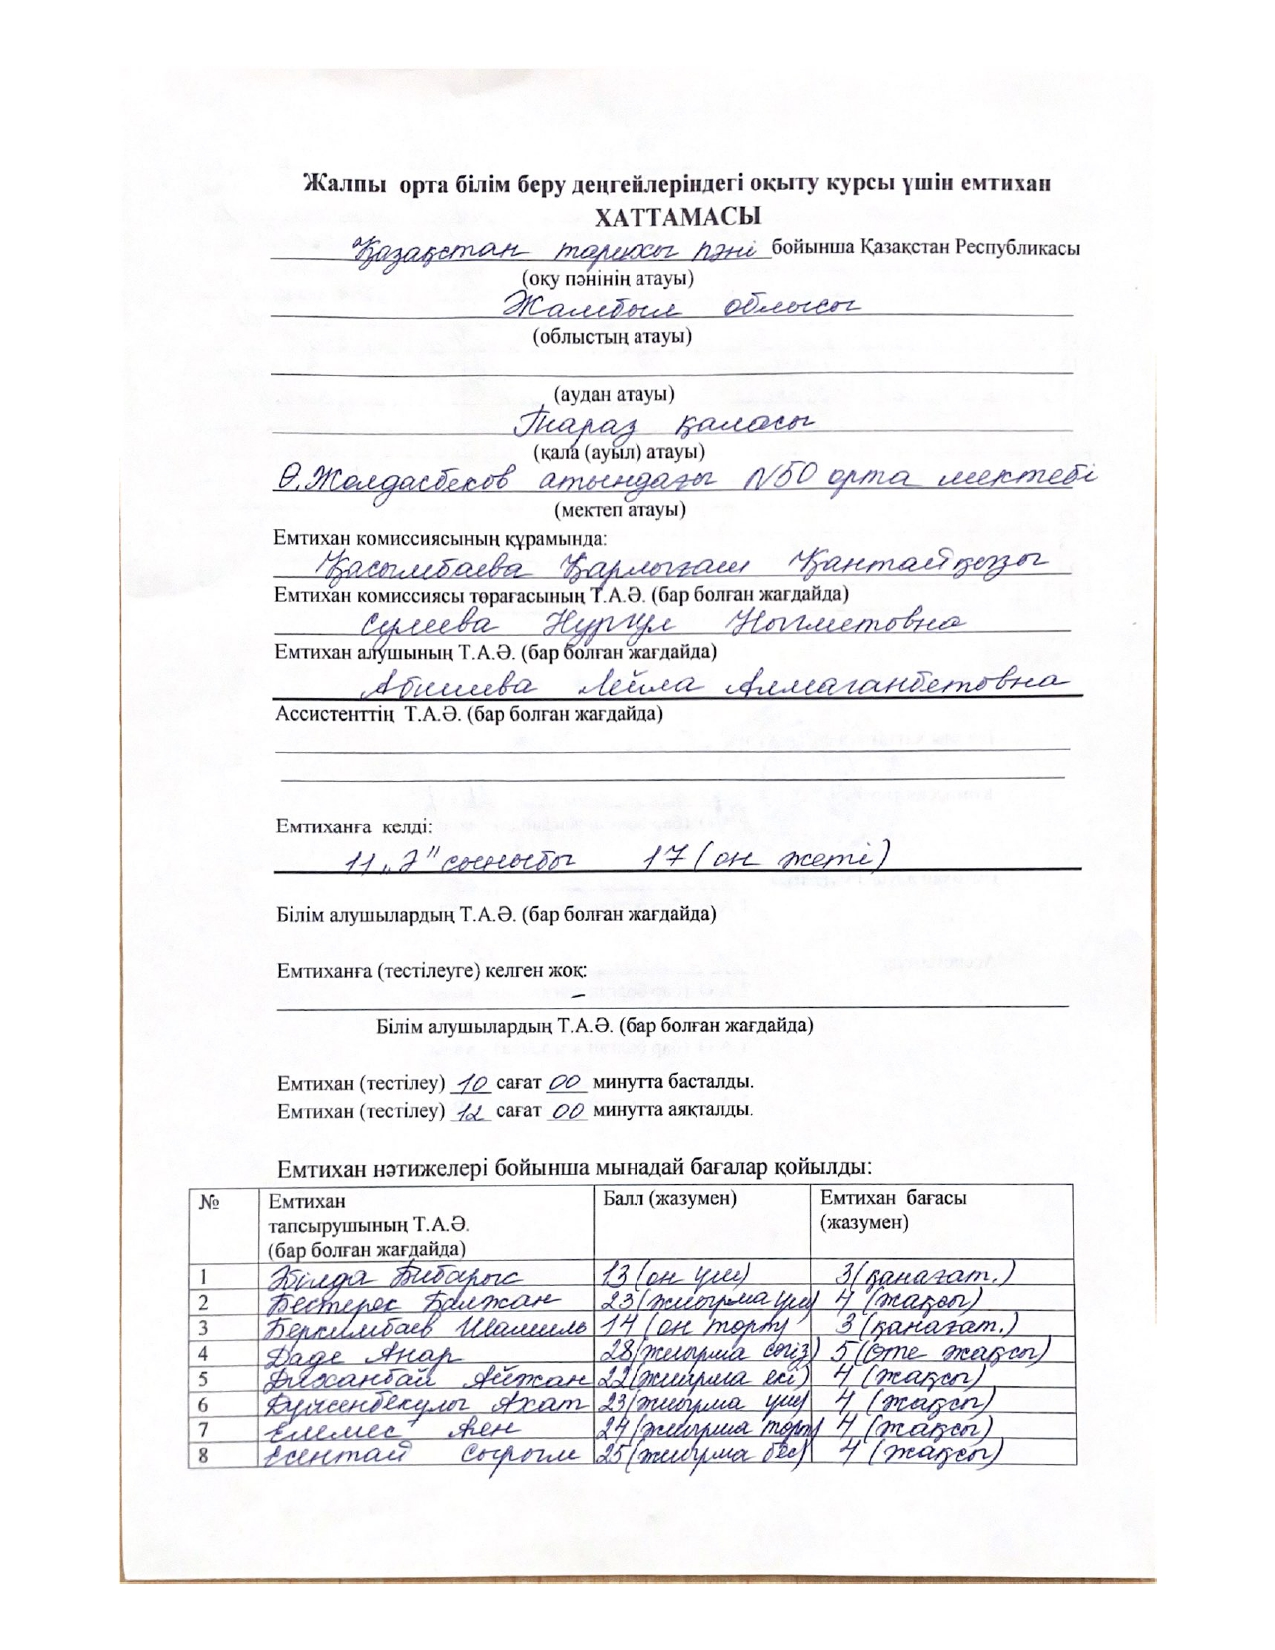 Жалпы орта білім беру деңгейлеріндегі оқыту курсы үшін емтихан
ХАТТАМАСЫ
Қазақстан тарихы пәні бойынша Қазақстан Республикасы
(оқу пәнінің атауы)
Жамбыл облысы
(облыстың атауы)
(аудан атауы)
Тараз қаласы
(қала (ауыл) атауы)
Ө.Жолдасбеков атындағы N50 орта мектебі
(мектеп атауы)
Емтихан комиссиясының құрамында:
Қасымбаева Қарлығаш Қантайқызы
Емтихан комиссиясы төрағасының Т.А.Ә. (бар болған жағдайда)
Сулеева Нургул Ногметовна
Емтихан алушының Т.А.Ә. (бар болған жағдайда)
Абишева Лейла Алмаганбетовна
Ассистенттің Т.А.Ә. (бар болған жағдайда)
Емтиханға келді:
11 „Ә" сыныбы 17 (он жеті)
Білім алушылардың Т.А.Ә. (бар болған жағдайда)
Емтиханға (тестілеуге) келген жоқ:
–
Білім алушылардың Т.А.Ә. (бар болған жағдайда)
Емтихан (тестілеу) 10 сағат 00 минутта басталды.
Емтихан (тестілеу) 12 сағат 00 минутта аяқталды.
Емтихан нәтижелері бойынша мынадай бағалар қойылды:
№ Емтихан Балл (жазумен) Емтихан бағасы
тапсырушының Т.А.Ә. (жазумен)
(бар болған жағдайда)
1 Әбілда Бибарыс 13 (он үш) 3 (қанағат.)
2 Бестерек Балжан 23 (жиырма үш) 4 (жақсы)
3 Беркимбаев Шамиль 14 (он төрт) 3 (қанағат.)
4 Даде Анар 28 (жиырма сегіз) 5 (өте жақсы)
5 Диханбай Айжан 22 (жиырма екі) 4 (жақсы)
6 Дүйсенбекұлы Ахат 23 (жиырма үш) 4 (жақсы)
7 Елемес 24 (жиырма төрт) 4 (жақсы)
8 Есентай Сырым 25 (жиырма бес) 4 (жақсы)